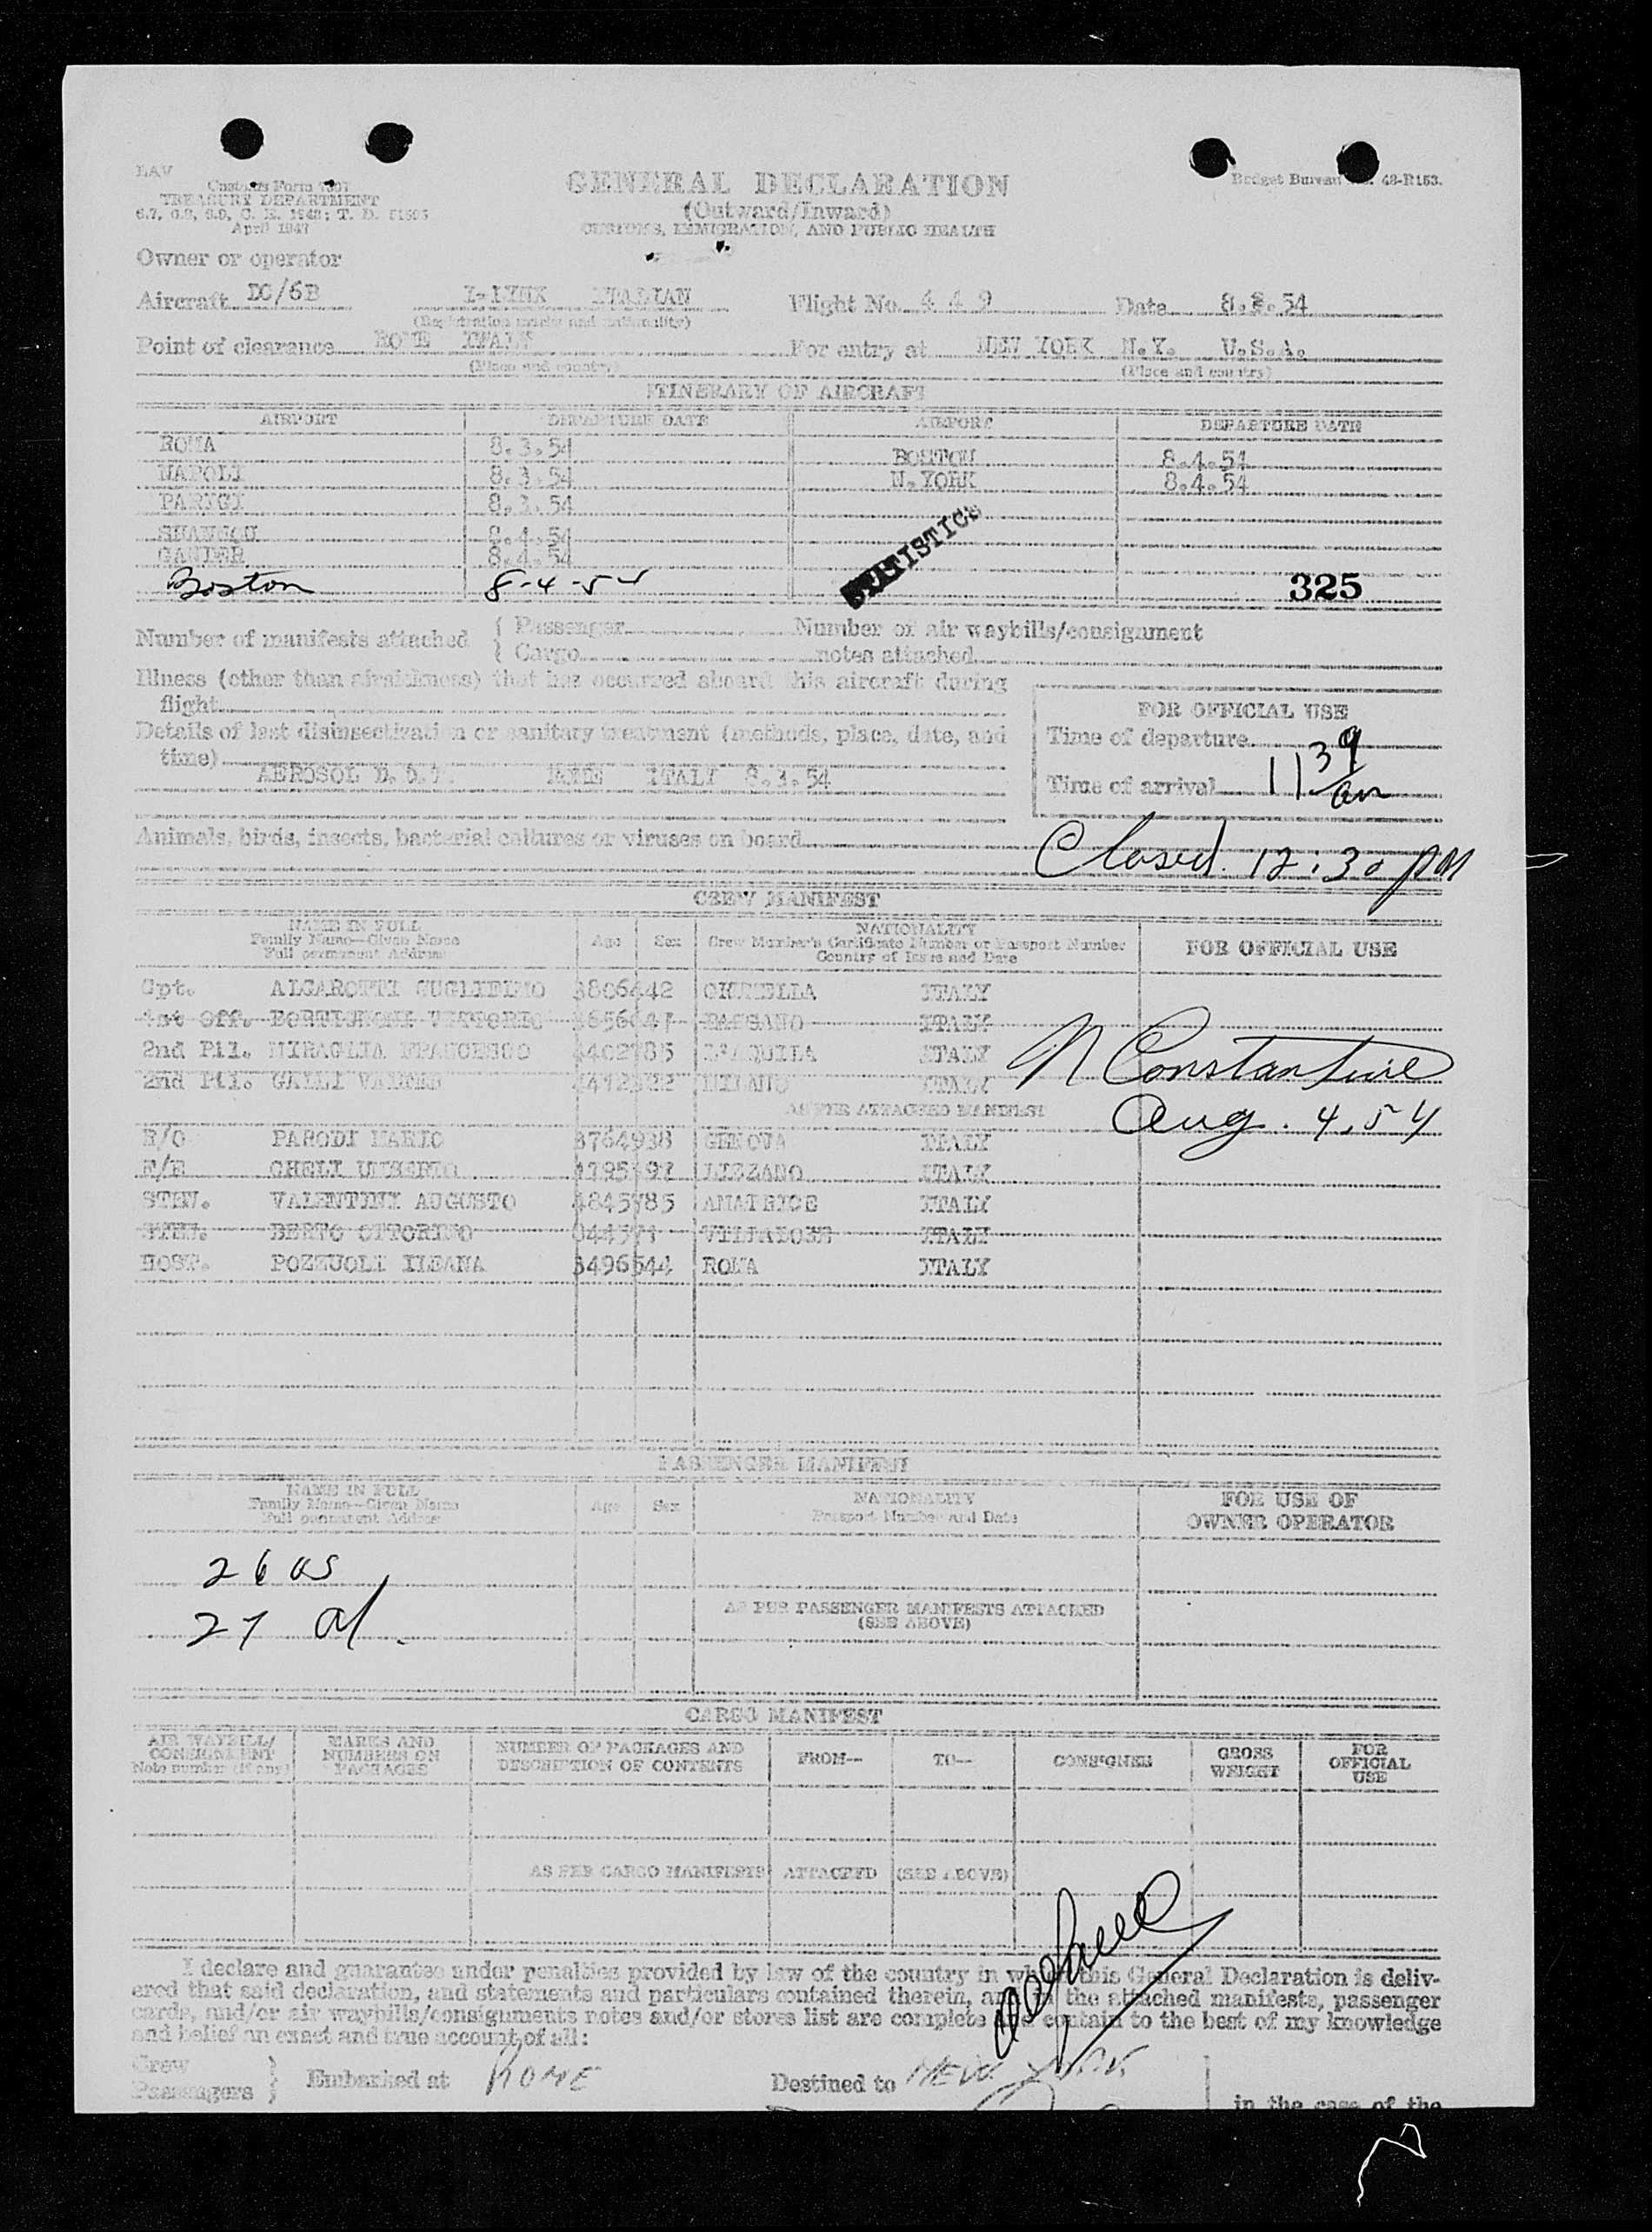 LAV
Customs Form 7507
TREASURY DEPARTMENT
April 1947
GENERAL DECLARATION
(Outward/Inward)
CUSTOMS, IMMIGRATION, AND PUBLIC HEALTH
Budget Bureau 48-R153.
Owner or operator
Aircraft DC/6B I-LYNX ITALIAN Flight No. 449 Date 8.3.54
(Registration marks and nationality)
Point of clearance ROME ITALY For entry at NEW YORK N.Y. U.S.A.
(Place and country) (Place and country)
ITINERARY OF AIRCRAFT
AIRPORT DEPARTURE DATE AIRPORT DEPARTURE DATE
ROMA 8.3.54
BOSTON 8.4.54
NAPOLI 8.3.54
N.YORK 8.4.54
PARIGI 8.3.54
SHANNON 8.4.54
GANDER 8.4.54
STATISTICS
Boston 8-4-54
325
Number of manifests attached { Passenger Number of air waybills/consignment
{ Cargo notes attached
Illness (other than airsickness) that has occurred aboard this aircraft during
flight
FOR OFFICIAL USE
Details of last disinsectization or sanitary treatment (methods, place, date, and
time)
Time of departure
AEROSOL D.D.T. ROME ITALY 8.3.54
Time of arrival 11 39 am
Animals, birds, insects, bacterial cultures or viruses on board
Closed. 12:30 PM
CREW MANIFEST
NAME IN FULL
Family Name—Given Name
Full permanent Address
Age Sex
NATIONALITY
Crew Member's Certificate Number or Passport Number
Country of Issue and Date
FOR OFFICIAL USE
Cpt. ALGAROTTI GUGLIELMO 3806442 ITALY
1st Off. VITTORIO BASSANO ITALY
2nd Pil. MIRAGLIA FRANCESCO 4402785 L'AQUILA ITALY
2nd Pil. GALLI MILANO ITALY
N Constantine
AS PER ATTACHED MANIFEST
Aug. 4, 54
R/O PARODI MARIO 3764938 GENOVA ITALY
F/E GHELI UMBERTO LIZZANO ITALY
STEW. VALENTINI AUGUSTO 4845785 AMATRICE ITALY
STEW. BERTO OTTORINO ITALY
HOST. POZZUOLI ILEANA 3496544 ROMA ITALY
PASSENGER MANIFEST
NAME IN FULL
Family Name—Given Name
Full permanent Address
Age Sex
NATIONALITY
Passport Number and Date
FOR USE OF
OWNER OPERATOR
26 US
27 al
AS PER PASSENGER MANIFESTS ATTACHED
(SEE ABOVE)
CARGO MANIFEST
AIR WAYBILL/
CONSIGNMENT
Note number (if any)
MARKS AND
NUMBERS ON
PACKAGES
NUMBER OF PACKAGES AND
DESCRIPTION OF CONTENTS
FROM—
TO—
CONSIGNEE
GROSS
WEIGHT
FOR
OFFICIAL
USE
AS PER CARGO MANIFESTS ATTACHED (SEE ABOVE)
I declare and guarantee under penalties provided by law of the country in which this General Declaration is deliv-
ered that said declaration, and statements and particulars contained therein, and in the attached manifests, passenger
cards, and/or air waybills/consignments notes and/or stores list are complete and contain to the best of my knowledge
and belief an exact and true account of all:
Crew
Passengers } Embarked at ROME Destined to NEW YORK
in the case of the